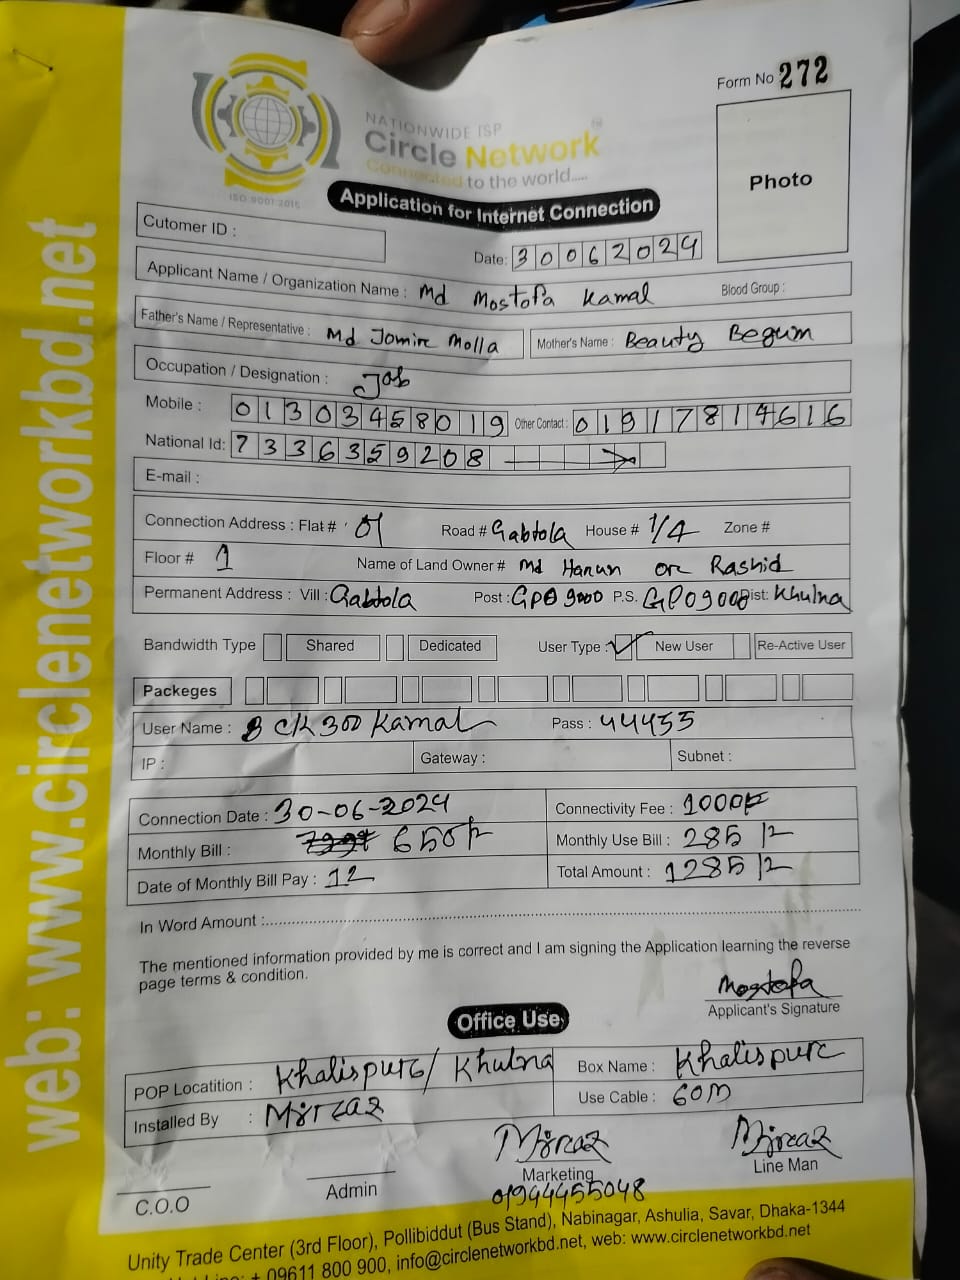 Form No 272
NATIONWIDE ISP
Circle Network™
Connected to the world.....
ISO 9001:2015
Photo
Application for Internet Connection
Cutomer ID :
Date: 30062024
Applicant Name / Organization Name : Md Mostofa Kamal Blood Group :
Father's Name / Representative : Md Jomir Molla Mother's Name : Beauty Begum
Occupation / Designation : Job
Mobile : 01303458019 Other Contact : 01917814616
National Id: 7336359208
E-mail :
Connection Address : Flat # 01 Road # Gabtola House # 1/4 Zone #
Floor # 1 Name of Land Owner # Md Harun or Rashid
Permanent Address : Vill : Gabtola Post : GPO 9000 P.S. GPO 9000 Dist: Khulna
Bandwidth Type Shared Dedicated User Type : New User Re-Active User
Packeges
User Name : CK300 Kamal Pass : 44455
IP : Gateway : Subnet :
Connection Date : 30-06-2024 Connectivity Fee : 1000/-
Monthly Bill : 650/- Monthly Use Bill : 285/-
Date of Monthly Bill Pay : 12 Total Amount : 1285/-
In Word Amount :
The mentioned information provided by me is correct and I am signing the Application learning the reverse
page terms & condition.
Mostofa
Applicant's Signature
Office Use
POP Locatition : Khalispure/ Khulna Box Name : Khalispure
Installed By : Use Cable : 60M
C.O.O Admin Marketing Line Man
01944455048
Unity Trade Center (3rd Floor), Pollibiddut (Bus Stand), Nabinagar, Ashulia, Savar, Dhaka-1344
09611 800 900, info@circlenetworkbd.net, web: www.circlenetworkbd.net
web: www.circlenetworkbd.net